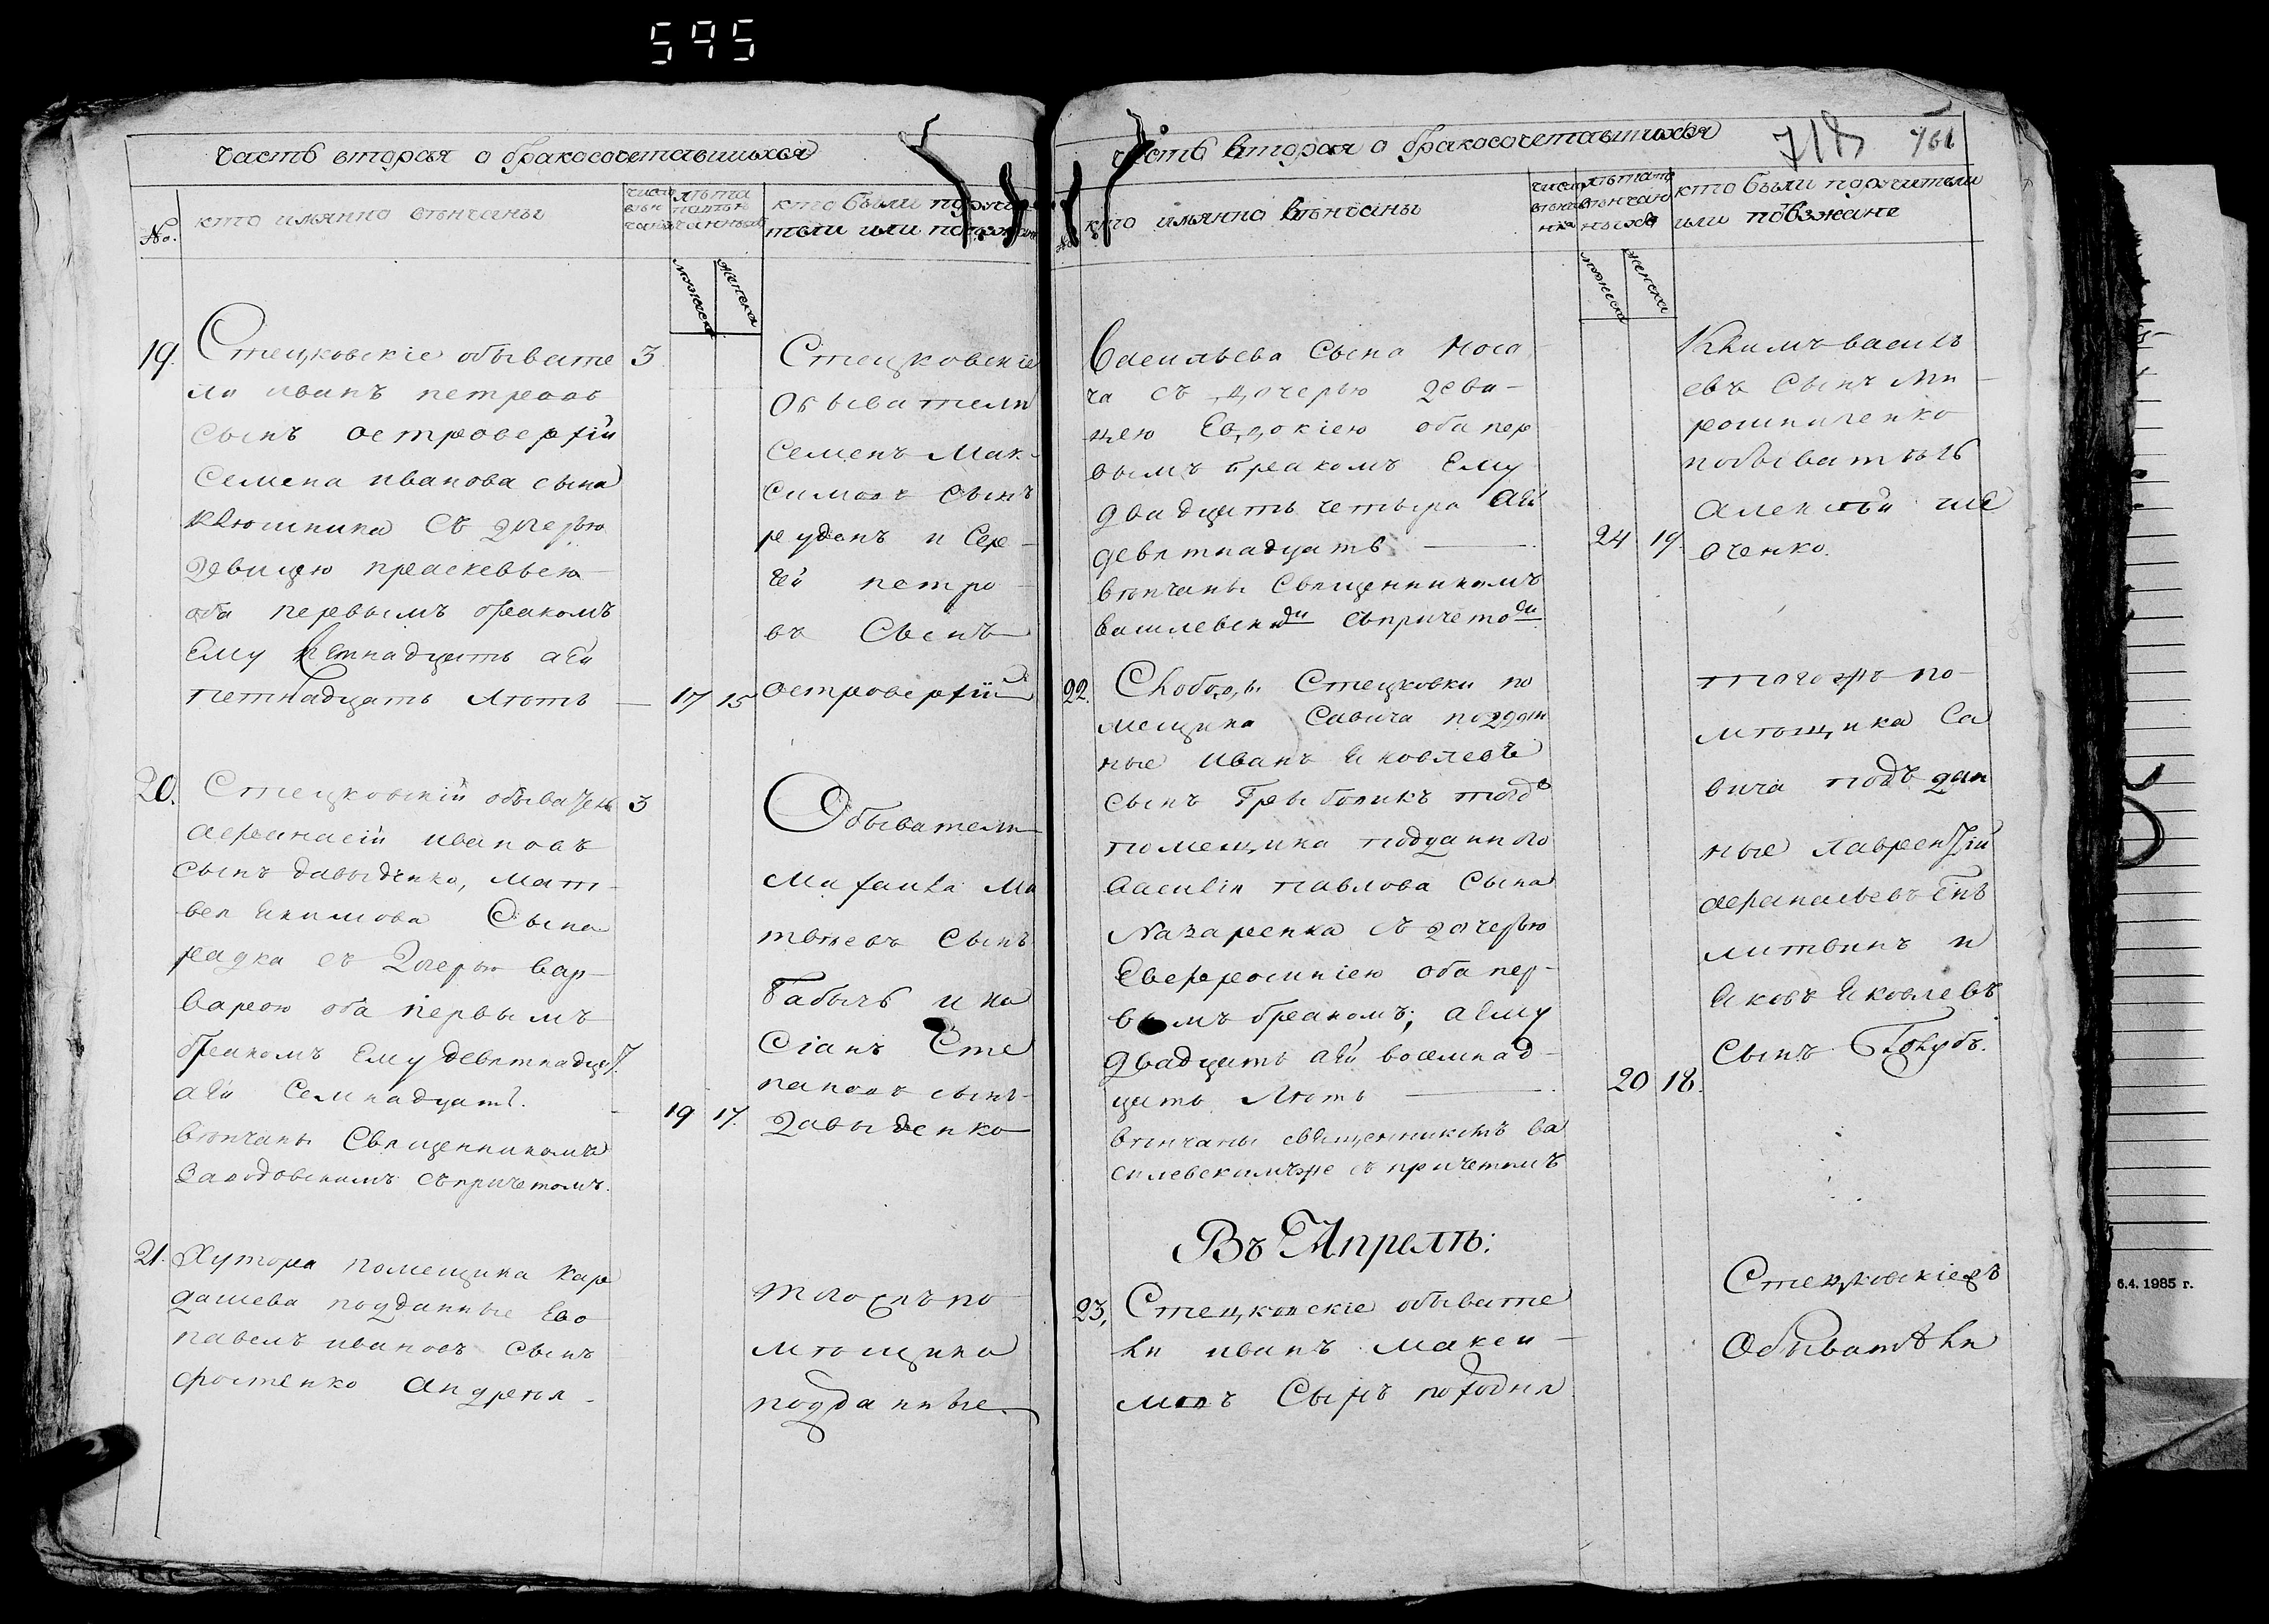 595
часть вторая о бракосочетавшихся
№.
кто имянно вѣнчаны
число вѣн чанія
лѣта
мужеска
женска
кто были поручи
тели или поезжане
19.
Стецковскіе обывате
ли иванъ петровъ
сынъ островерхій
семена иванова сына
Клюшника съ дочерью
девицею праскевьею
оба первымъ бракомъ
Ему семнадцать аЕй
петнадцать лѣтъ
3
17 15
Стецковскіе
Обыватели
семенъ Мак-
симовъ сынъ
руденъ и Сер-
гей петро-
въ Сынъ
островерхій
20.
Стецковскій обыватель
афанасій ивановъ
сынъ давыденко, мат-
вея Якимова Сына
радка съ дочерью вар-
варею оба первымъ
бракомъ Ему девятнадцат
аЕй Семнадцать.
вѣнчаны Священникомъ
Заводовскимъ съ причетомъ.
3
19 17.
Обыватели
Михайла Ма
твѣевъ сынъ
Бабычъ и ка
сіанъ Сте
пановъ сынъ
Давыденко
21.
Хутора помещика кар
дашева подданные Его
павелъ ивановъ сынъ
фостенко андрея
того жъ по
мѣщика
подданные
часть вторая о бракосочетавшихся
718 761
кто имянно вѣнчаны
мужеска
женска
кто были поручители
или поѣзжане
Васильева Сына Носа
ча съ дочерью деви-
цею Евдокіею оба пер
вымъ бракомъ Ему
двадцать четыри аЕй
девятнадцать
вѣнчаны Священникомъ
василевски съ причето
24 19.
Климъ василь
евъ Сынъ Ми-
рошниченко
побыватель
алексѣй ше
вченко.
22.
Слободы Стецковки по
мещика Савича поддан
ные иванъ Яковлевъ
сынъ Грыболикъ того
помещика подданного
василія павлова Сына
Назаренка съ дочерью
Евфросиніею оба пер-
вымъ бракомъ; а Ему
двадцать аЕй восемнад-
цать Лѣтъ
вѣнчаны священникомъ ва
силевскимъ же съ причетомъ
20 18.
того жъ по-
мѣщика Са
вича поддан
ные лаврентій
афанасьевъ снъ
литвинъ и
Яковъ Яковлевъ
сынъ Голубъ.
Въ Апрелѣ:
23,
Стецковскіе обывате
ли иванъ макси-
мовъ Сынъ походня
Стецковскіе
Обыватѣли
6.4. 1985 г.